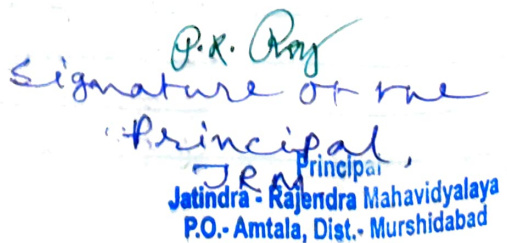 P.K. Roy
Signature of the
Principal,
JRM
Principal
Jatindra - Rajendra Mahavidyalaya
P.O.- Amtala, Dist.- Murshidabad